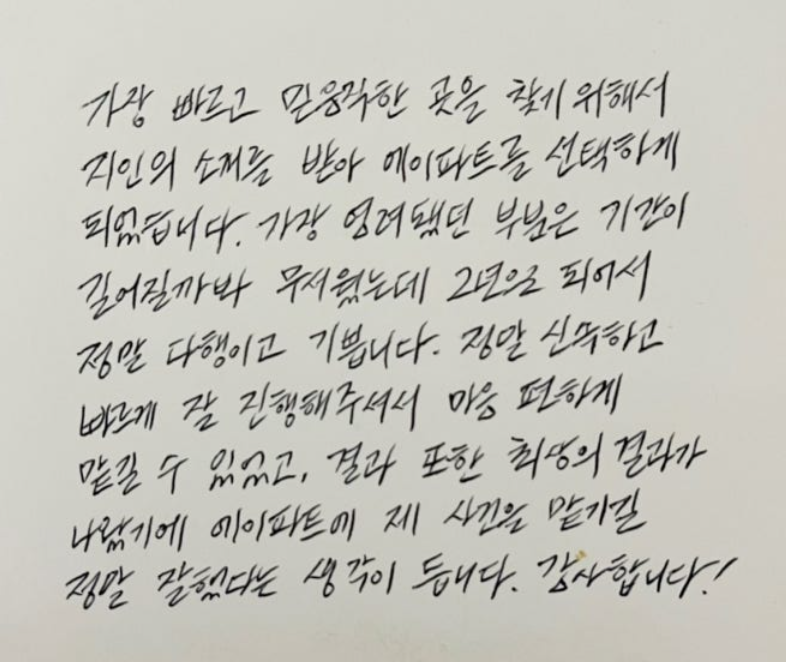 가장 빠르고 믿음직한 곳을 찾기 위해서
지인의 소개를 받아 에이파트를 선택하게
되었습니다. 가장 염려됐던 부분은 기간이
길어질까봐 무서웠는데 2년으로 되어서
정말 다행이고 기쁩니다. 정말 신뚝하고
빠르게 잘 진행해주셔서 마음 편하게
맡길 수 있었고, 결과 또한 최상의 결과가
나왔기에 에이파트에 제 사건을 맡기길
정말 잘했다는 생각이 듭니다. 감사합니다!